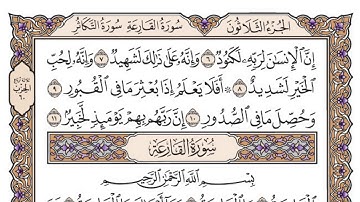 الجزء الثلاثون سورة القارعة سورة التكاثر
إِنَّ ٱلْإِنسَٰنَ لِرَبِّهِۦ لَكَنُودٌ ٦ وَإِنَّهُۥ عَلَىٰ ذَٰلِكَ لَشَهِيدٌ ٧ وَإِنَّهُۥ لِحُبِّ
ٱلْخَيْرِ لَشَدِيدٌ ٨ أَفَلَا يَعْلَمُ إِذَا بُعْثِرَ مَا فِي ٱلْقُبُورِ ٩
وَحُصِّلَ مَا فِي ٱلصُّدُورِ ١٠ إِنَّ رَبَّهُم بِهِمْ يَوْمَئِذٍ لَّخَبِيرٌ ١١
سُورَةُ القَارِعَة
بِسْمِ ٱللَّهِ ٱلرَّحْمَٰنِ ٱلرَّحِيمِ